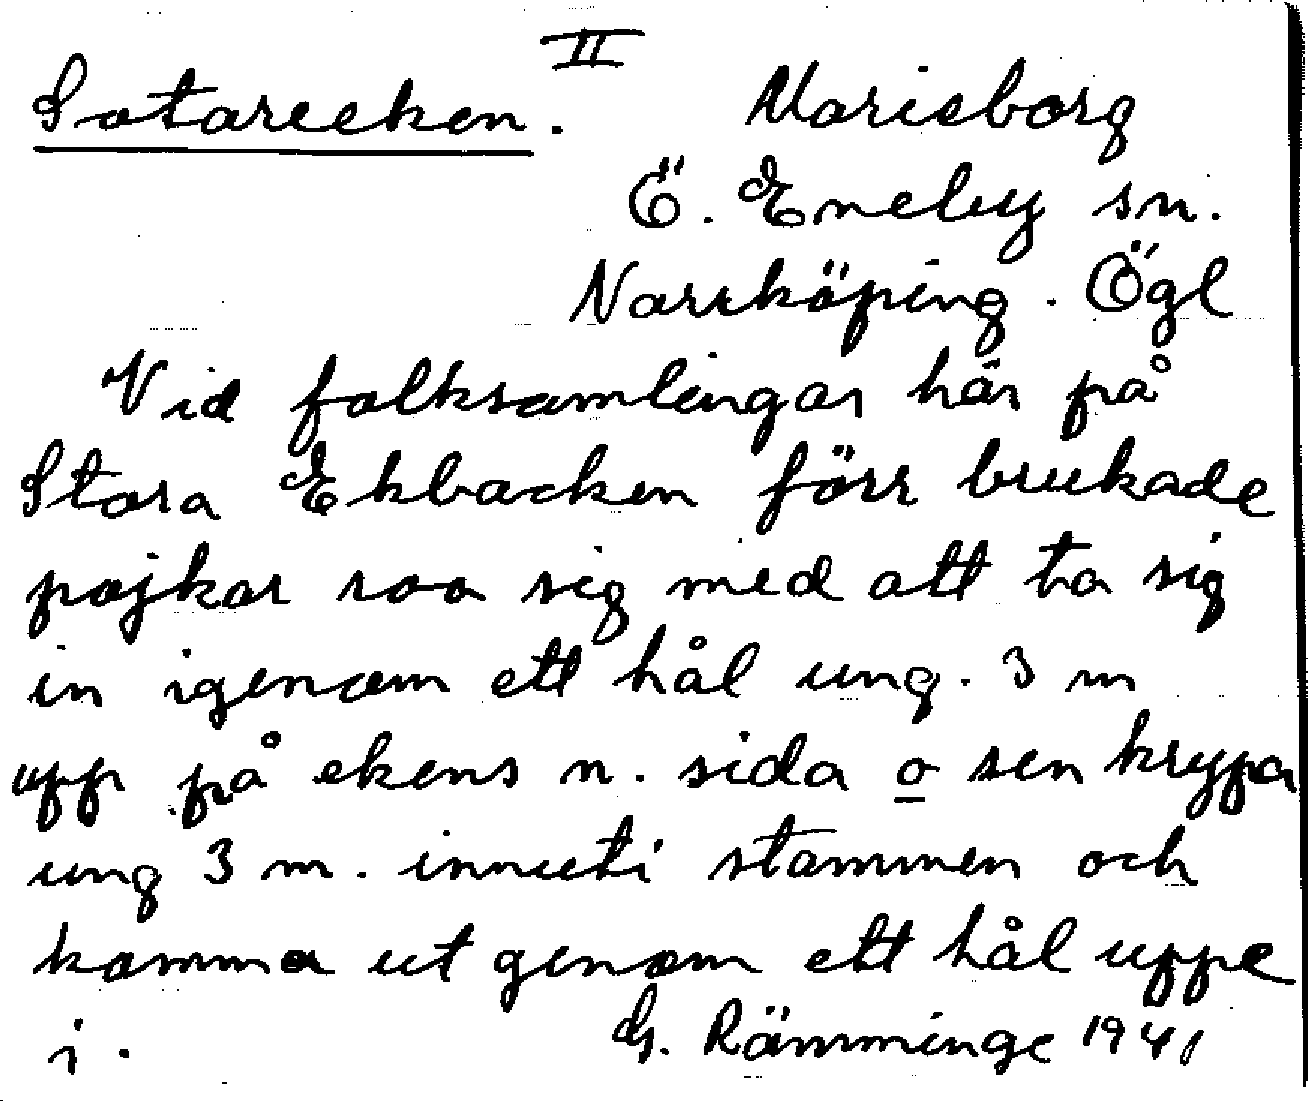 II
Sotareeken. Marieborg
Ö. Eneby sn.
Norrköping. Ögl
Vid folksamlingar här på
Stora Ekbacken förr brukade
pojkar roa sig med att ta sig
in igenom ett hål ung. 3 m
upp på ekens n. sida o sen krypa
ung 3 m. innuti stammen och
komma ut genom ett hål uppe
i. G. Rämminge 1941